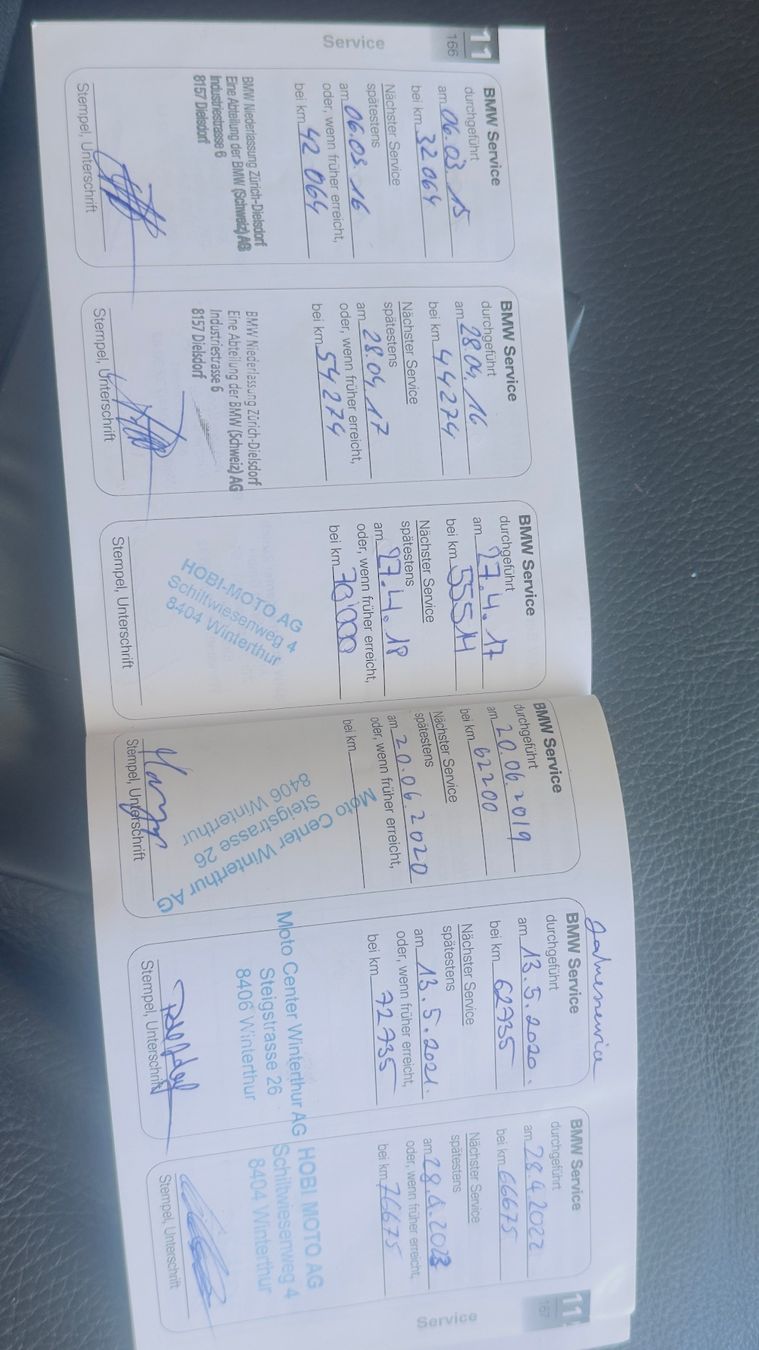 11
166
Service
BMW Service
durchgeführt
am 06.03 15
bei km 32 064
Nächster Service
spätestens
am 06.03 16
oder, wenn früher erreicht,
bei km 42 064
BMW Niederlassung Zürich-Dielsdorf
Eine Abteilung der BMW (Schweiz) AG
Industriestrasse 6
8157 Dielsdorf
Stempel, Unterschrift
BMW Service
durchgeführt
am 28.04. 16
bei km 44274
Nächster Service
spätestens
am 28.04. 17
oder, wenn früher erreicht,
bei km 54274
BMW Niederlassung Zürich-Dielsdorf
Eine Abteilung der BMW (Schweiz) AG
Industriestrasse 6
8157 Dielsdorf
Stempel, Unterschrift
BMW Service
durchgeführt
am 27.4.17
bei km 55514
Nächster Service
spätestens
am 27.4.18
oder, wenn früher erreicht,
bei km
HOBI-MOTO AG
Schiltwiesenweg 4
8404 Winterthur
Stempel, Unterschrift
BMW Service
durchgeführt
am 20.06.2019
bei km 62200
Nächster Service
spätestens
am 20.06 2020
oder, wenn früher erreicht,
bei km
Moto Center Winterthur AG
Steigstrasse 26
8406 Winterthur
Stempel, Unterschrift
Jahresservice
BMW Service
durchgeführt
am 13.5.2020.
bei km 62735
Nächster Service
spätestens
am 13.5.2021.
oder, wenn früher erreicht,
bei km 72735
Moto Center Winterthur AG
Steigstrasse 26
8406 Winterthur
Stempel, Unterschrift
BMW Service
durchgeführt
am 28.4.2022
bei km 66675
Nächster Service
spätestens
am
oder, wenn früher erreicht,
bei km 76675
HOBI MOTO AG
Schiltwiesenweg 4
8404 Winterthur
Stempel, Unterschrift
Service
11
167